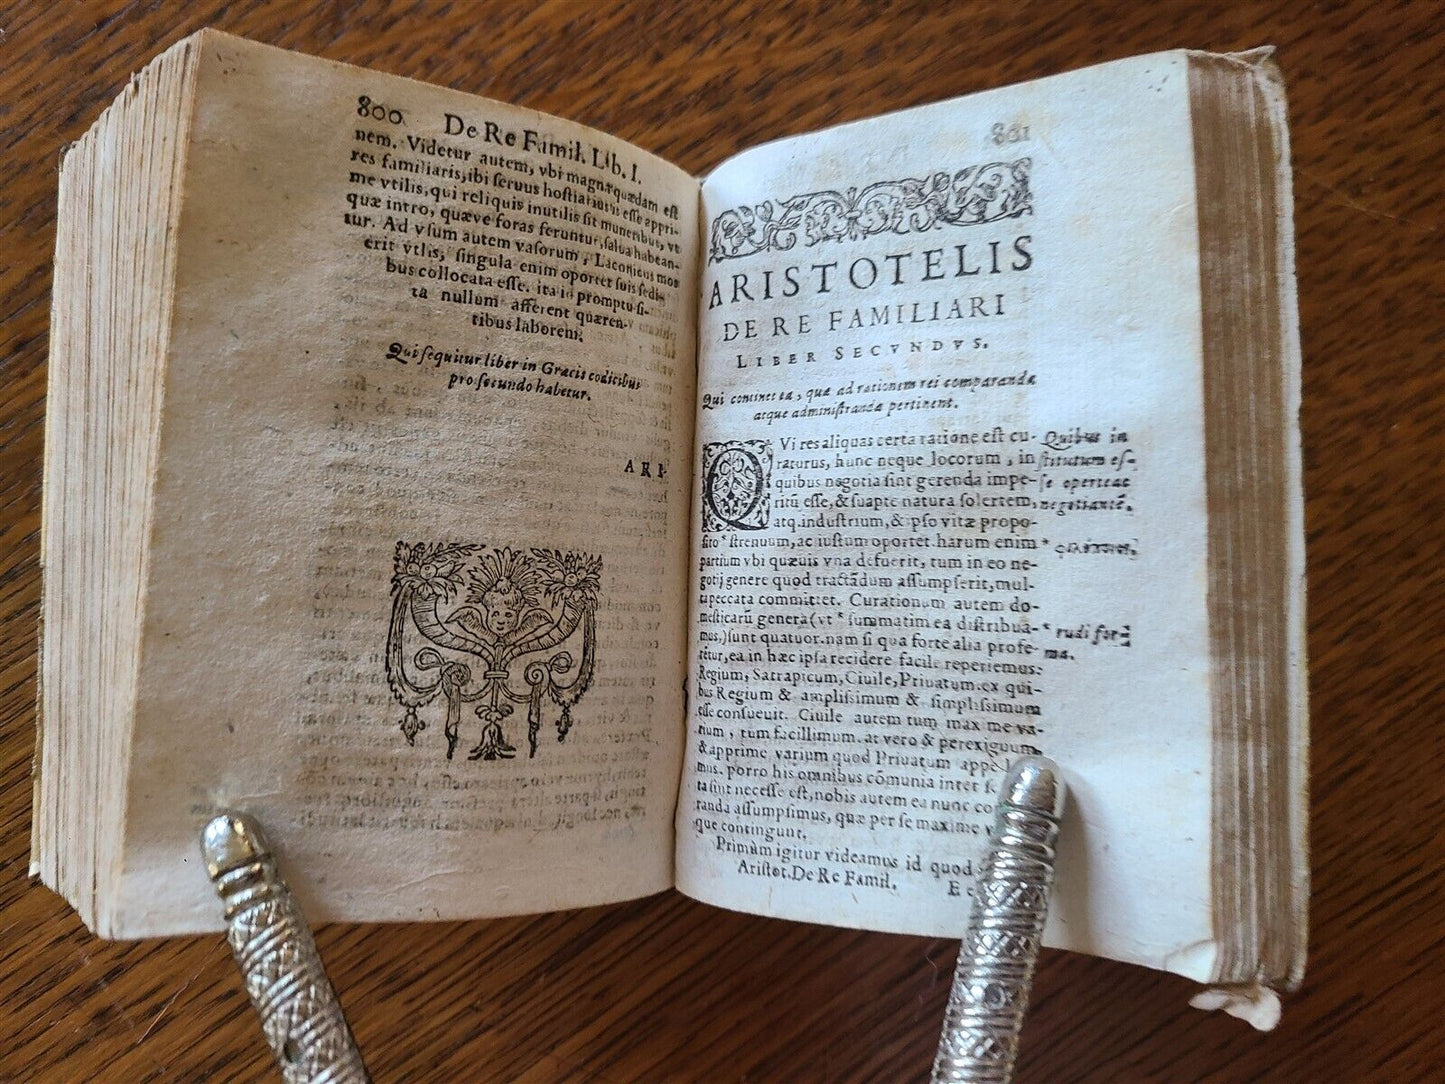 800. De Re Famil. Lib. I.
nem. Videtur autem, vbi magnæ quædam est
res familiaris, ibi seruus hostiarius esse appri-
me vtilis, qui reliquis inutilis sit muneribus, vt
quæ intro, quæve foras feruntur, salua habean-
tur. Ad vsum autem vasorum, Laconicus mos
erit vtlis, singula enim oportet suis sedi-
bus collocata esse. ita in promptu si-
ta nullum afferent quæren-
tibus laborem.
Qui sequitur liber in Græcis codicibus
pro secundo habetur.
ARI-
801
ARISTOTELIS
DE RE FAMILIARI
LIBER SECVNDVS.
Qui continet ea, quæ ad rationem rei comparandæ
atque administrandæ pertinent.
QVi res aliquas certa ratione est cu-
raturus, hunc neque locorum, in
quibus negotia sint gerenda impe-
ritū esse, & suapte natura solertem,
atq. industrium, & ipso vitæ propo-
sito * strenuum, ac iustum oportet. harum enim
partium vbi quæuis vna defuerit, tum in eo ne-
gotij genere quod tractādum assumpserit, mul-
ta peccata committet. Curationum autem do-
mesticarū genera (vt * summatim ea distribua-
mus,) sunt quatuor. nam si qua forte alia profe-
rētur, ea in hæc ipsa recidere facile reperiemus:
Regium, Satrapicum, Ciuile, Priuatum. ex qui-
bus Regium & amplissimum & simplissimum
esse consueuit. Ciuile autem tum maxime va-
rium, tum facillimum. at vero & perexiguum
& apprime varium quod Priuatum appel
mus. porro his omnibus cōmunia inter se
ta sint necesse est, nobis autem ea nunc co
randa assumpsimus, quæ per se maxime
que contingunt.
Primum igitur videamus id quod
Aristot. De Re Famil. E e
Quibus in
stitutum es-
se oporteat
negotiantē.
* rudi for-
ma.